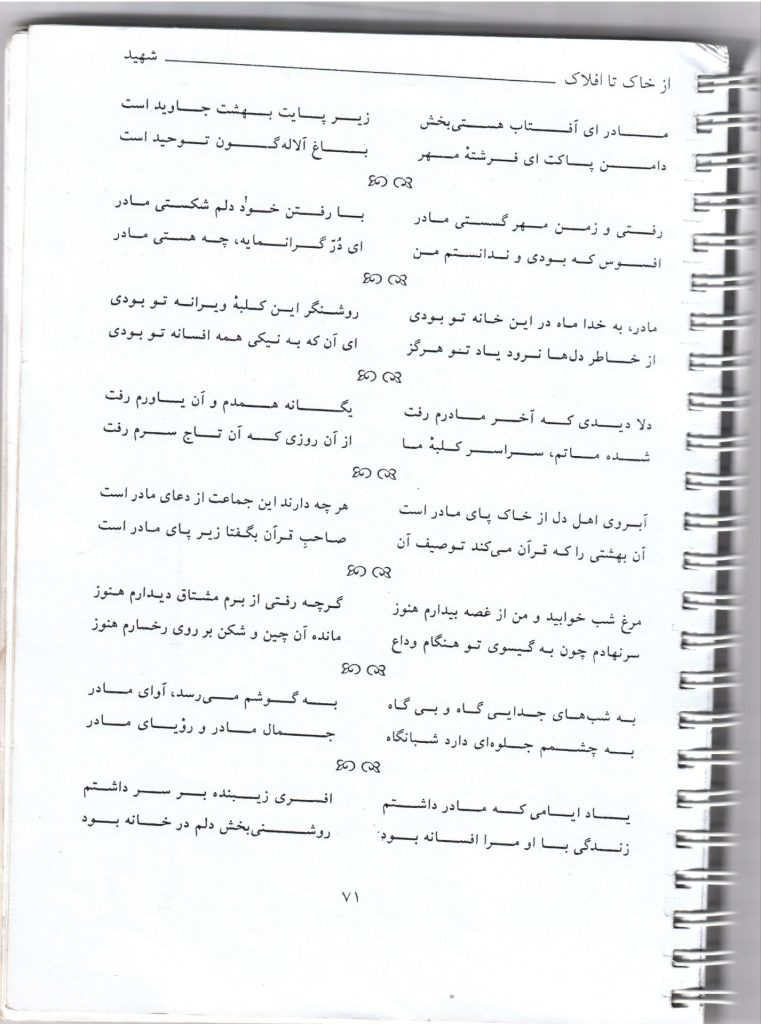 از خاک تا افلاک شهید
مادر ای آفتاب هستی‌بخش زیر پایت بهشت جاوید است
دامن پاکت ای فرشتهٔ مهر باغ آلاله‌گون توحید است
رفتی و زمن مهر گسستی مادر با رفتن خود دلم شکستی مادر
افسوس که بودی و ندانستم من ای دُرّ گرانمایه، چه هستی مادر
مادر، به خدا ماه در این خانه تو بودی روشنگر این کلبهٔ ویرانه تو بودی
از خاطر دل‌ها نرود یاد تو هرگز ای آن که به نیکی همه افسانه تو بودی
دلا دیدی که آخر مادرم رفت یگانه همدم و آن یاورم رفت
شده ماتم، سراسر کلبهٔ ما از آن روزی که آن تاج سرم رفت
آبروی اهل دل از خاک پای مادر است هر چه دارند این جماعت از دعای مادر است
آن بهشتی را که قرآن می‌کند توصیف آن صاحبِ قرآن بگفتا زیر پای مادر است
مرغ شب خوابید و من از غصه بیدارم هنوز گرچه رفتی از برم مشتاق دیدارم هنوز
سرنهادم چون به گیسوی تو هنگام وداع مانده آن چین و شکن بر روی رخسارم هنوز
به شب‌های جدایی گاه و بی گاه به گوشم می‌رسد، آوای مادر
به چشمم جلوه‌ای دارد شبانگاه جمال مادر و رؤیای مادر
یاد ایامی که مادر داشتم افسری زیبنده بر سر داشتم
زندگی با او مرا افسانه بود روشنی‌بخش دلم در خانه بود
۷۱